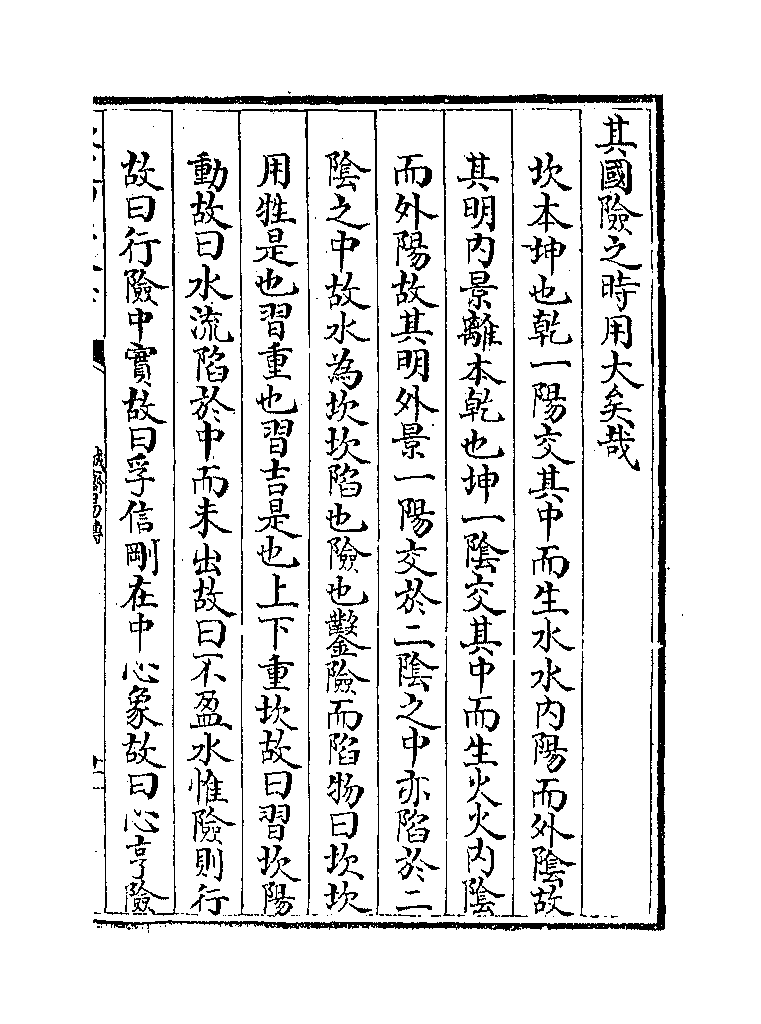 其國險之時用大矣哉
坎本坤也乾一陽交其中而生水水內陽而外陰故
其明內景離本乾也坤一陰交其中而生火火內陰
而外陽故其明外景一陽交於二陰之中亦陷於二
陰之中故水為坎坎陷也險也鑿險而陷物曰坎坎
用牲是也習重也習吉是也上下重坎故曰習坎陽
動故曰水流陷於中而未出故曰不盈水惟險則行
故曰行險中實故曰孚信剛在中心象故曰心亨險
誠齋易傳